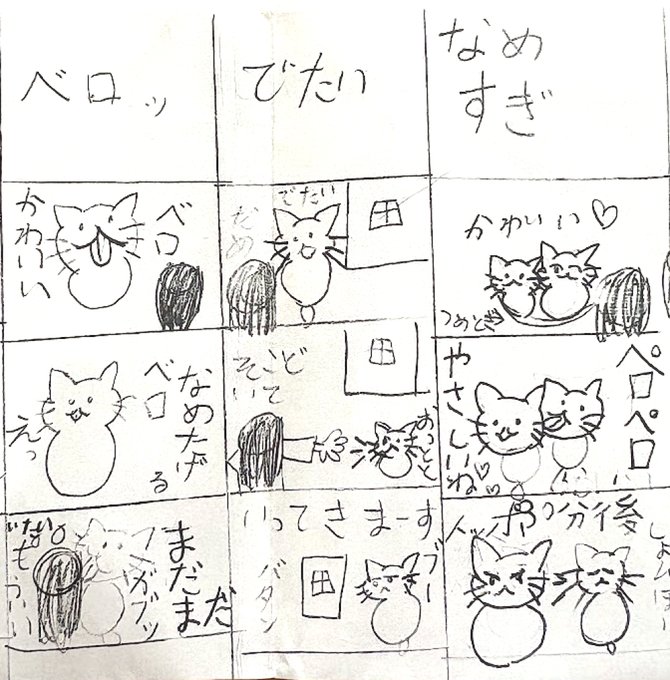 ベロッ
かわいい
ベロ
ベロ
なめたげる
えっ
まだまだ
ガブッ
いたい
もういい
でたい
でたい
だめ
そこどいて
おっとと
いってきまーす
バタン
ブー
なめ
すぎ
かわいい♡
つめとぎ
ペロペロ
やさしいね♡♡
分後